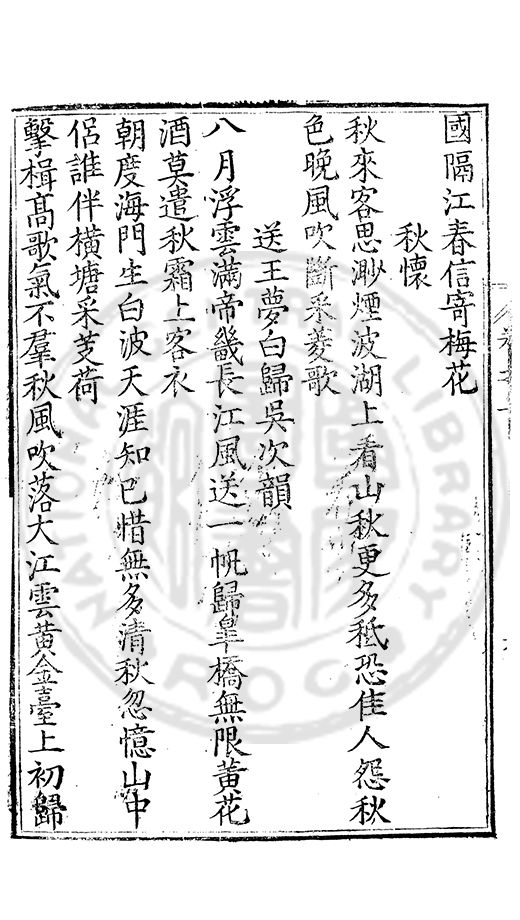 國隔江春信寄梅花
秋懷
秋來客思渺煙波湖上看山秋更多秪恐佳人怨秋
色晚風吹斷采菱歌
送王夢白歸吳次韻
八月浮雲滿帝畿長江風送一帆歸皐橋無限黃花
酒莫遣秋霜上客衣
朝度海門生白波天涯知已惜無多清秋忽憶山中
侶誰伴橫塘采芰荷
擊楫高歌氣不羣秋風吹落大江雲黃金臺上初歸